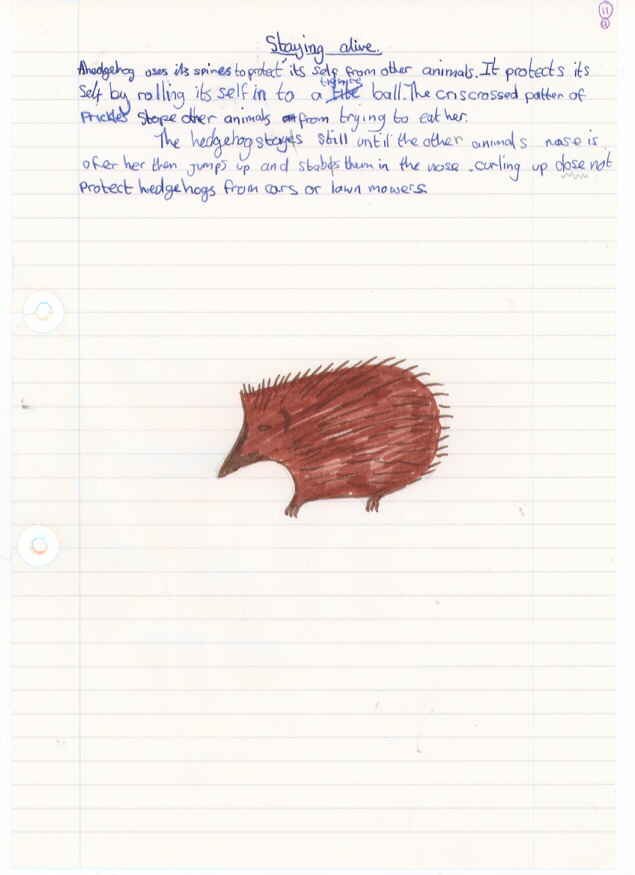 11
Staying alive.
A hedgehog uses its spines to protect its self from other animals. It protects its
self by rolling its self in to a ball. The criscrossed patten of
Prickles stope other animals from trying to eat her.
The hedgehog stayes still until the other animals nose is
ofer her then jumps up and stabbs them in the nose. curling up dose not
Protect hedgehogs from cars or lawn mowers.